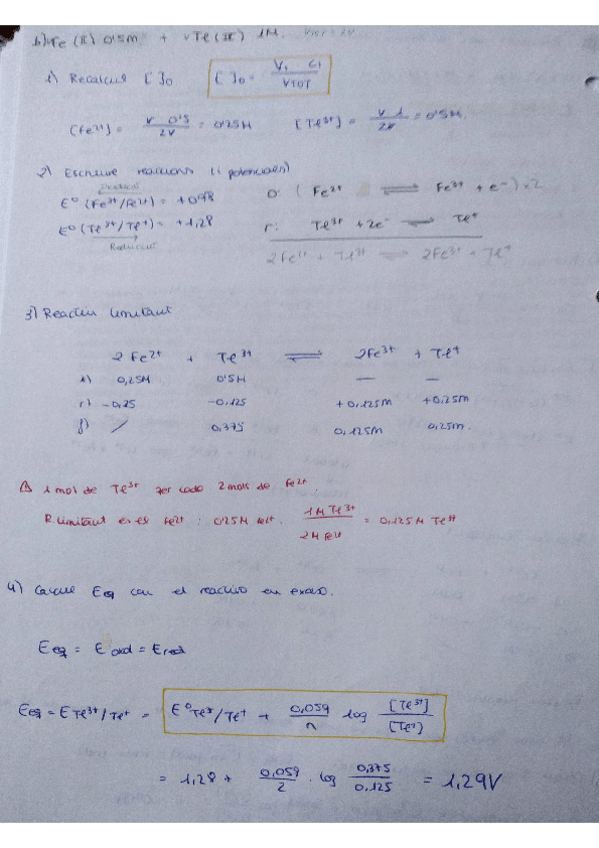 b) vFe (II) 0'5M + vTe(III) 1M. VTOT = 2V
1) Recalcul [ ]₀ [ ]₀ = V₁ · C₁ / VTOT
[Fe²⁺] = V 0'5 / 2V = 0'25M [Tl³⁺] = V 1 / 2V = 0'5M.
2) Escriure reaccions (i potencials)
E⁰ (Fe³⁺/Fe²⁺) = +0'98 O: (Fe²⁺ ⇌ Fe³⁺ + e⁻) x2
E⁰ (Te³⁺/Te⁺) = +1,28 r: Te³⁺ + 2e⁻ ⇌ Te⁺
Reducció 2Fe²⁺ + Tl³⁺ ⇌ 2Fe³⁺ + Tl⁺
3) Reactiu limitant
2Fe²⁺ + Te³⁺ ⇌ 2Fe³⁺ + Te⁺
i) 0,25M 0'5M — —
r) -0,25 -0,125 +0,125M +0,25M
f) / 0,375 0,125M 0,25M.
1 mol de Te³⁺ per cada 2 mols de Fe²⁺
R limitant es el Fe²⁺ : 0'25M Fe²⁺ . 1M Te³⁺ / 2M Fe²⁺ = 0,125M Te³⁺
4) Calcul Eeq con el reactivo en exceso.
Eeq = Eoxd = Ered
Eeq = E Te³⁺/Te⁺ = E⁰ Te³⁺/Te⁺ + 0,059 / n log [Te³⁺] / [Te⁺]
= 1,28 + 0,059 / 2 · log 0,375 / 0,125 = 1,29V